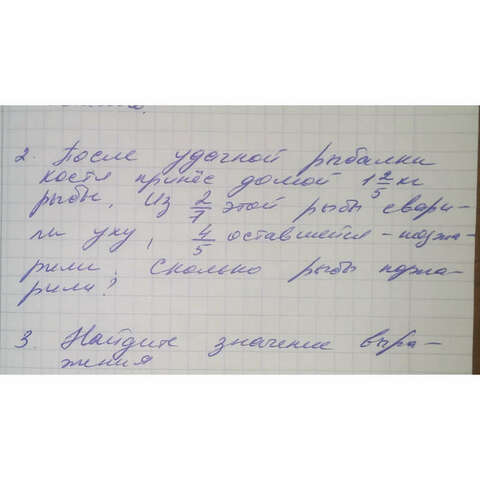 2. После удачной рыбалки
Костя принёс домой 1 2/5 кг
рыбы. Из 2/7 этой рыбы свари-
ли уху, 4/5 оставшейся - поджа-
рили. Сколько рыбы поджа-
рили?
3. Найдите значение выра-
жения